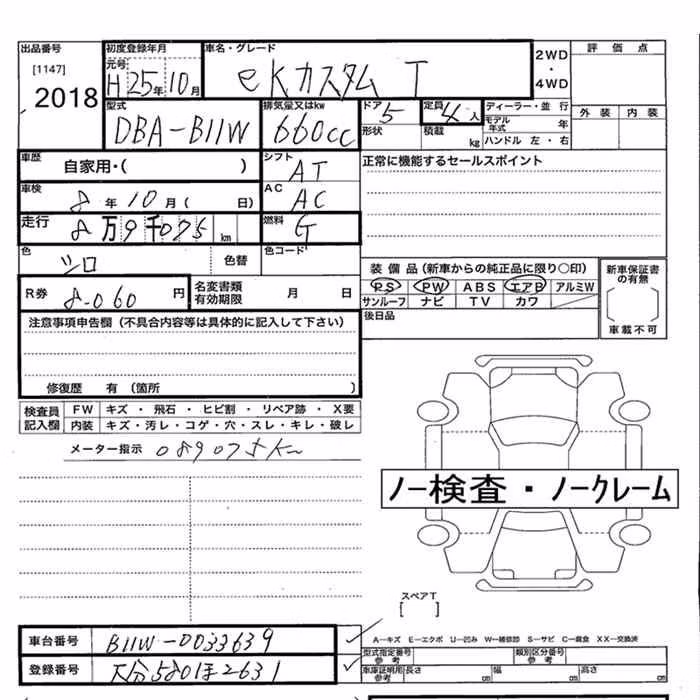 出品番号 初度登録年月 車名・グレード 2WD・4WD 評価点
[1147] 元号 H25年10月 eKカスタム T
2018
型式 排気量又はkw ドア 5 定員 4人 ディーラー・並行 外装 内装
DBA-B11W 660cc 形状 積載 kg モデル年式 年
ハンドル 左・右
車歴 自家用・( ) シフト AT 正常に機能するセールスポイント
車検 8年10月( 日) AC AC
走行 8万9千075km 燃料 G
色 シロ 色替 色コード
装備品(新車からの純正品に限り○印) 新車保証書の有無
PS PW ABS エアB アルミW
サンルーフ ナビ TV カワ 車載不可
R券 8-060円 名変書類有効期限 月 日
後日品
注意事項申告欄(不具合内容等は具体的に記入して下さい)
修復歴 有(箇所 )
検査員記入欄 FW キズ・飛石・ヒビ割・リペア跡・X要
内装 キズ・汚レ・コゲ・穴・スレ・キレ・破レ
メーター指示 089075K
ノー検査・ノークレーム
スペアT
[ ]
車台番号 B11W-0033639
A-キズ E-エクボ U-凹み W-補修跡 S-サビ C-腐食 XX-交換済
登録番号 大分580ほ2631
型式指定番号 参考 類別区分番号 参考
車庫証明用 参考 長さ cm 幅 cm 高さ cm